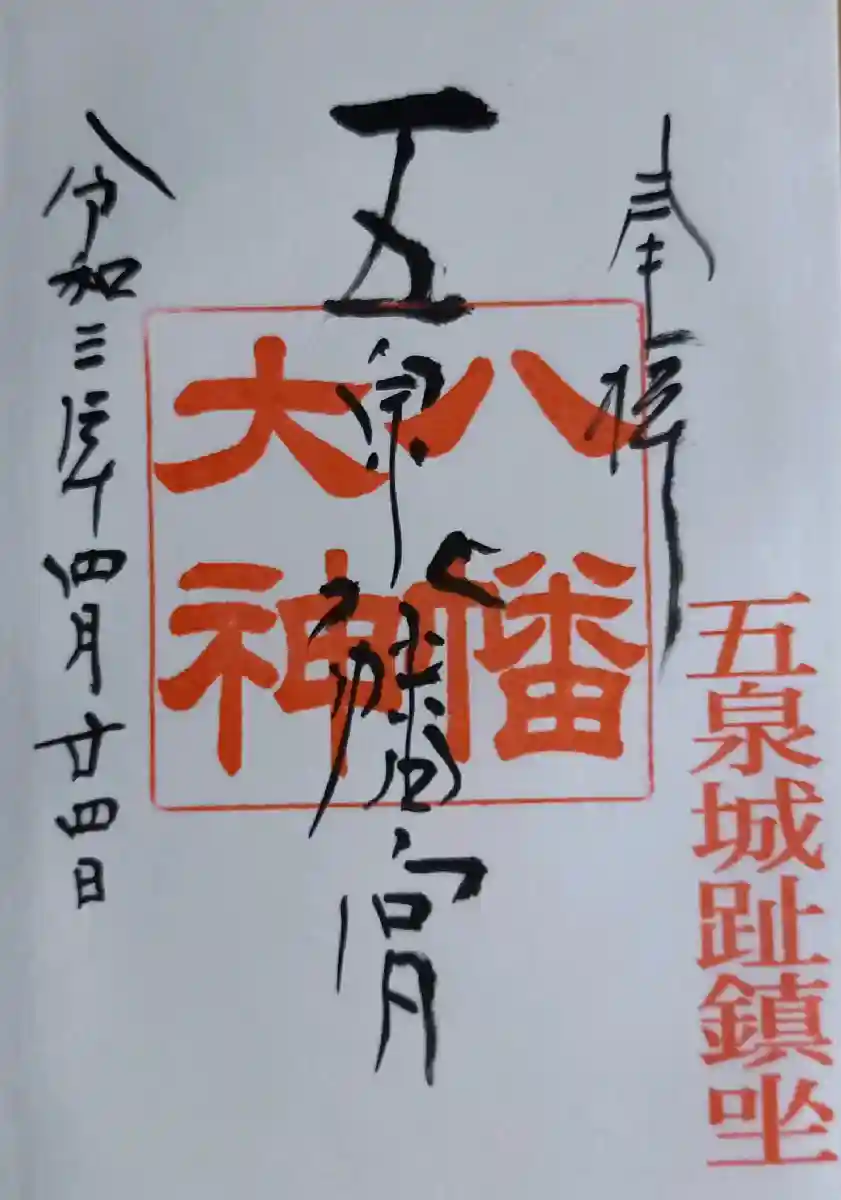 奉拝
五泉城趾鎮坐
五泉八幡宮
八幡
大神
令和三年四月廿四日